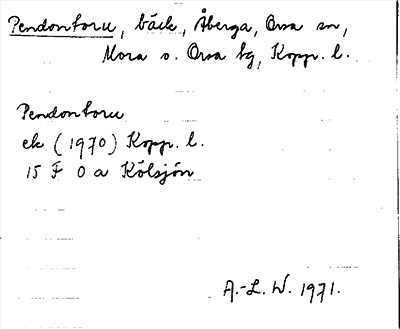 Pendontoru, bäck, Åberga, Orsa sn,
Mora o. Orsa tg, Kopp. l.
Pendontoru
ek (1970) Kopp. l.
15 F 0 a Kölsjön
A.-L. W. 1971.